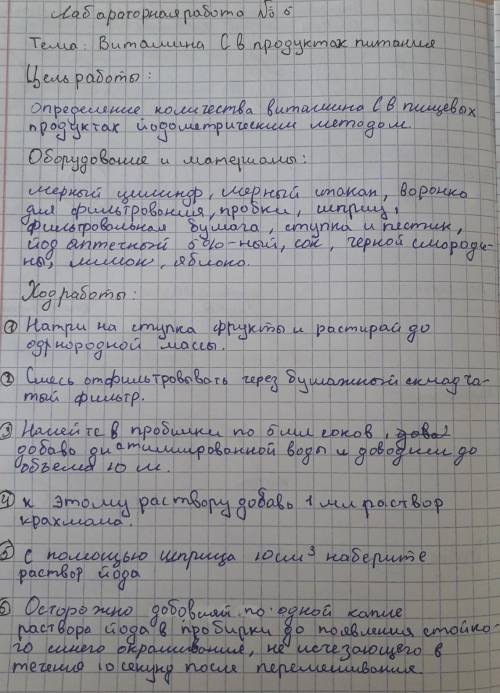 Лабараторная работа № 5
Тема: Витамина С в продуктах питания
Цель работы:
Определение количества витамина С в пищевых
продуктах йодометрическим методом.
Оборудование и материалы:
мерный цилиндр, мерный стакан, воронка
для фильтрования, пробки, шприц,
фильтровальная бумага, ступка и пестик,
йод аптечный 5%-ный, сок, черной смороди-
ны, лимон, яблоко.
Ход работы:
① Натри на ступка фрукты и растирай до
однородной массы.
② Смесь отфильтровывать через бумажный складча-
тый фильтр.
③ Налейте в пробирки по 5 мл соков,
добавь дистиллированной воды и доводим до
объема 10 м.
④ к этому раствору добавь 1 мл раствор
крахмала.
⑤ с помощью шприца 10 см³ наберите
раствор йода
⑥ Осторожно добовляй по одной капле
раствора йода в пробирки до появления стойко-
го синего окрашивания, не исчезающего в
течения 10 секунд после перемешивания.